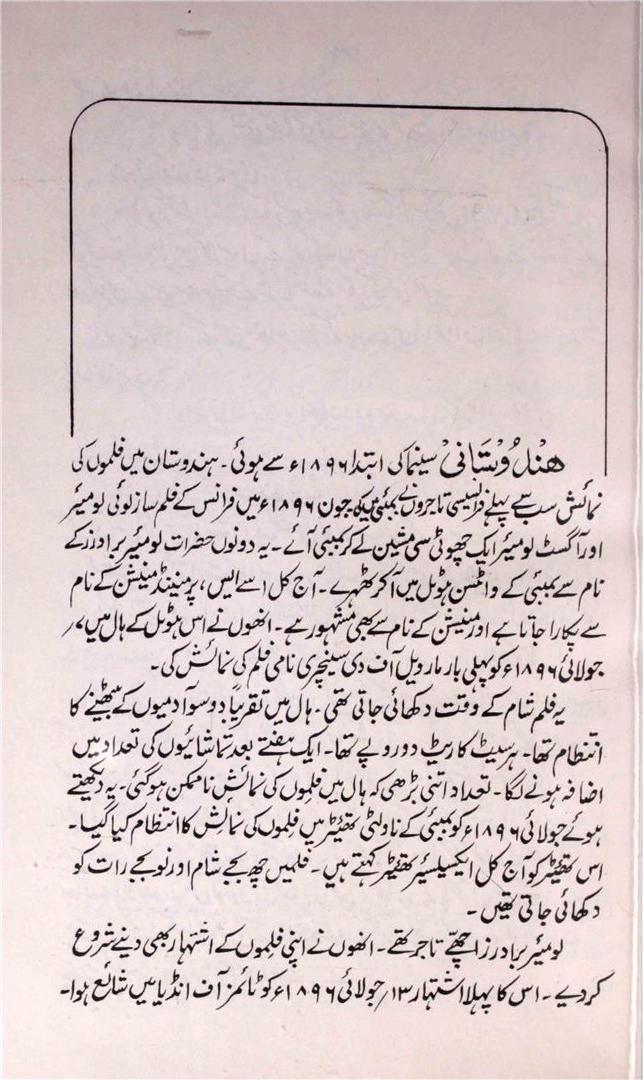 ھندوستانی سینما کی ابتدا ۱۸۹۶ء سے ہوئی۔ ہندوستان میں فلموں کی
نمائش سب سے پہلے فرانسیسی تاجروں نے بمبئی میں کی جون ۱۸۹۶ء میں فرانس کے فلم ساز لوئی لومیئر
اور آگسٹ لومیئر ایک چھوٹی سی مشین لے کر بمبئی آئے۔ یہ دونوں حضرات لومیئر برادرز کے
نام سے بمبئی کے واٹسن ہوٹل میں آکر ٹھہرے۔ آج کل اسے ایس، پرمنینڈ منیشن کے نام
سے پکارا جاتا ہے اور منیشن کے نام سے بھی مشہور ہے۔ انھوں نے اس ہوٹل کے ہال میں ۷/
جولائی ۱۸۹۶ء کو پہلی بار مارویل آف دی سینچری نامی فلم کی نمائش کی۔
یہ فلم شام کے وقت دکھائی جاتی تھی۔ ہال میں تقریباً دو سو آدمیوں کے بیٹھنے کا
انتظام تھا۔ ہر سیٹ کا ریٹ دو روپے تھا۔ ایک ہفتے بعد تماشائیوں کی تعداد میں
اضافہ ہونے لگا۔ تعداد اتنی بڑھی کہ ہال میں فلموں کی نمائش ناممکن ہوگئی۔ یہ دیکھتے
ہوئے جولائی ۱۸۹۶ء کو بمبئی کے ناولٹی تھیٹر میں فلموں کی نمائش کا انتظام کیا گیا۔
اس تھیٹر کو آج کل ایکسیلسیئر تھیٹر کہتے ہیں۔ فلمیں چھ بجے شام اور نو بجے رات کو
دکھائی جاتی تھیں۔
لومیئر برادرز اچھے تاجر تھے۔ انھوں نے اپنی فلموں کے اشتہار بھی دینے شروع
کردیے۔ اس کا پہلا اشتہار ۱۳/ جولائی ۱۸۹۶ء کو ٹائمز آف انڈیا میں شائع ہوا۔